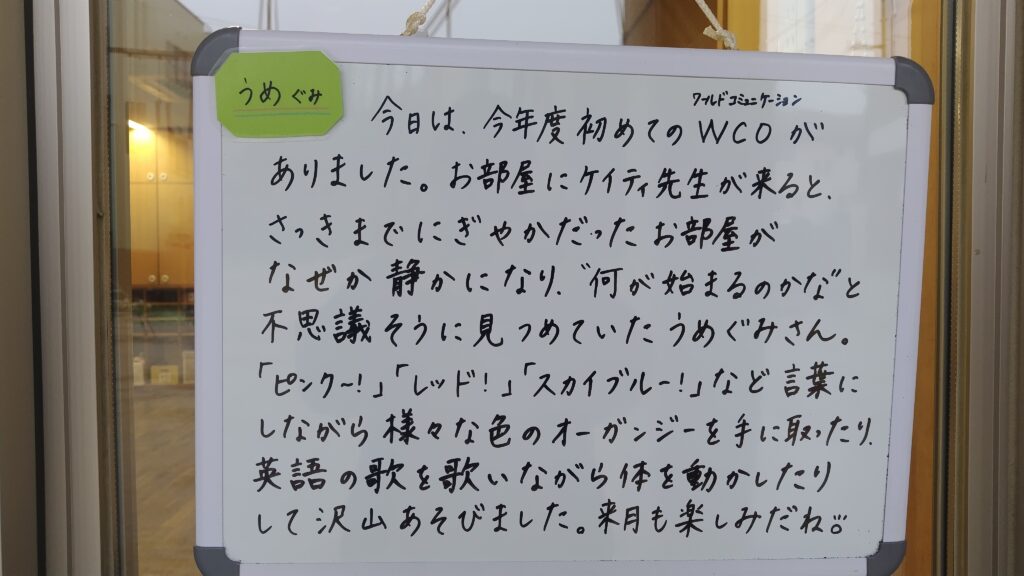 うめぐみ
ワールドコミュニケーション
今日は、今年度初めてのWCOが
ありました。お部屋にケイティ先生が来ると、
さっきまでにぎやかだったお部屋が
なぜか静かになり、"何が始まるのかな"と
不思議そうに見つめていたうめぐみさん。
「ピンク〜!」「レッド!」「スカイブルー!」など言葉に
しながら様々な色のオーガンジーを手に取ったり、
英語の歌を歌いながら体を動かしたり
して沢山あそびました。来月も楽しみだね